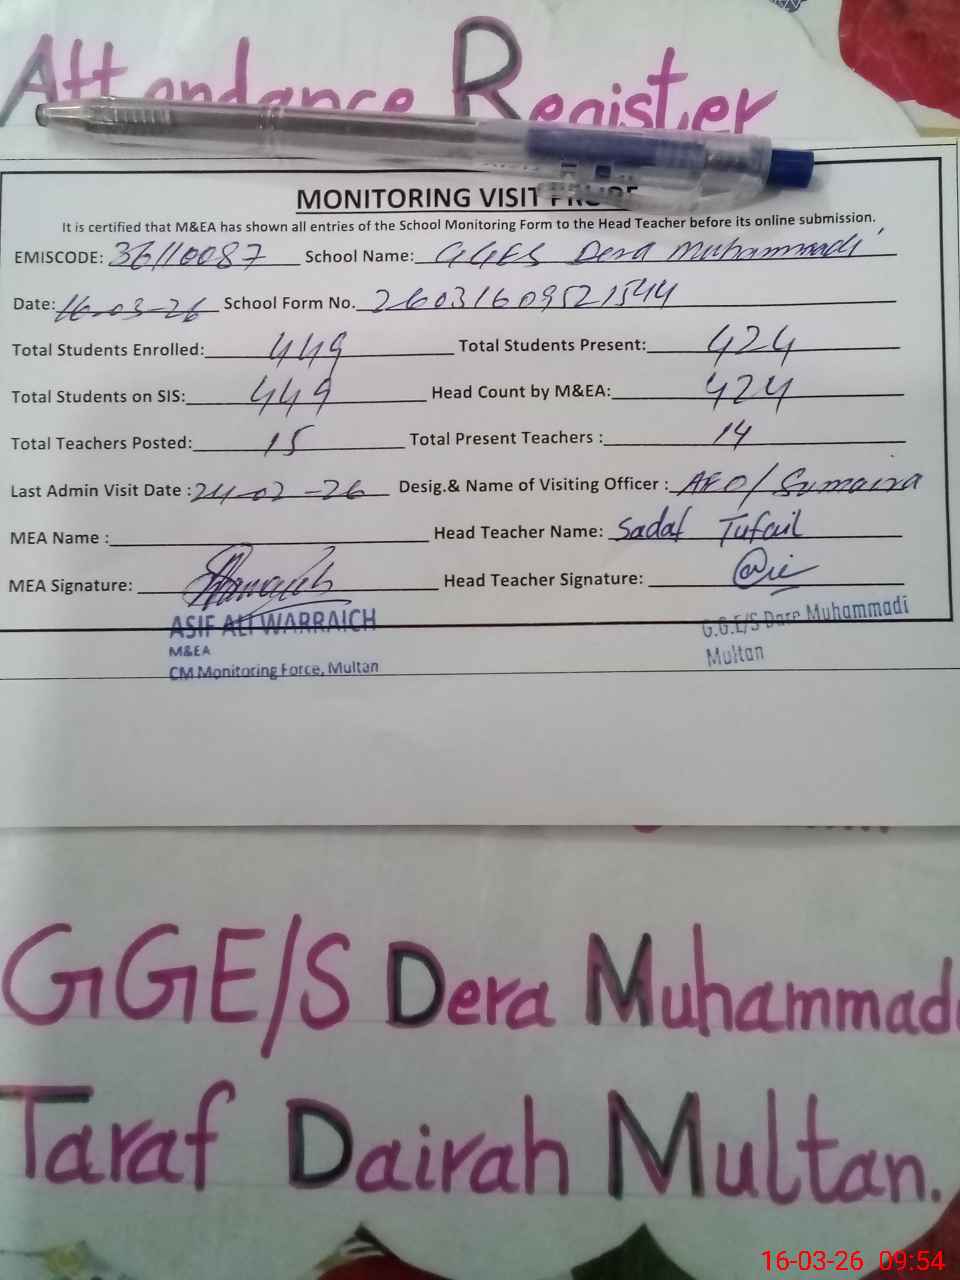 Attendance Register
MONITORING VISIT PROOF
It is certified that M&EA has shown all entries of the School Monitoring Form to the Head Teacher before its online submission.
EMISCODE: 36110087 School Name: GGES Dera Muhammadi
Date: 16-03-26 School Form No. 26031609521544
Total Students Enrolled: 449 Total Students Present: 424
Total Students on SIS: 449 Head Count by M&EA: 424
Total Teachers Posted: 15 Total Present Teachers : 14
Last Admin Visit Date : 24-02-26 Desig.& Name of Visiting Officer : AEO/ Sumaira
MEA Name : Head Teacher Name: Sadaf Tufail
MEA Signature: Head Teacher Signature:
ASIF ALI WARRAICH
M&EA
CM Monitoring Force, Multan
G.G.E/S Dare Muhammadi
Multan
GGE/S Dera Muhammadi
Taraf Dairah Multan.
16-03-26 09:54